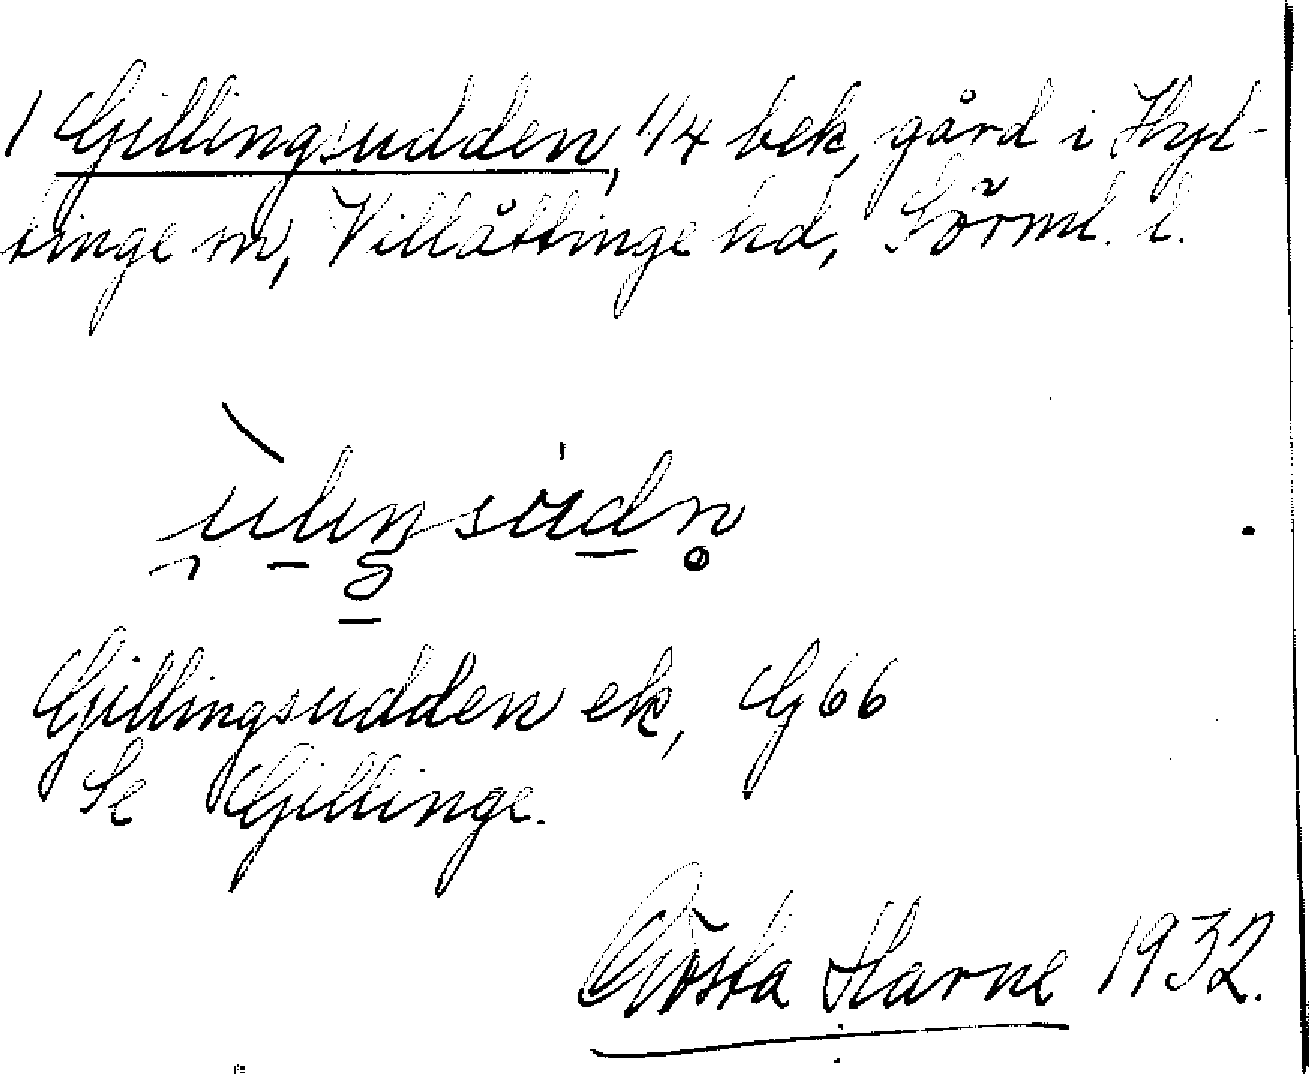 1 Gillingsudden, 1/4 bek, gård i Hyl-
tinge sn, Villåttinge hd, Sörml. l.
Gillingsudden ek, G66
Se Gillinge.
Gösta Harne 1932.